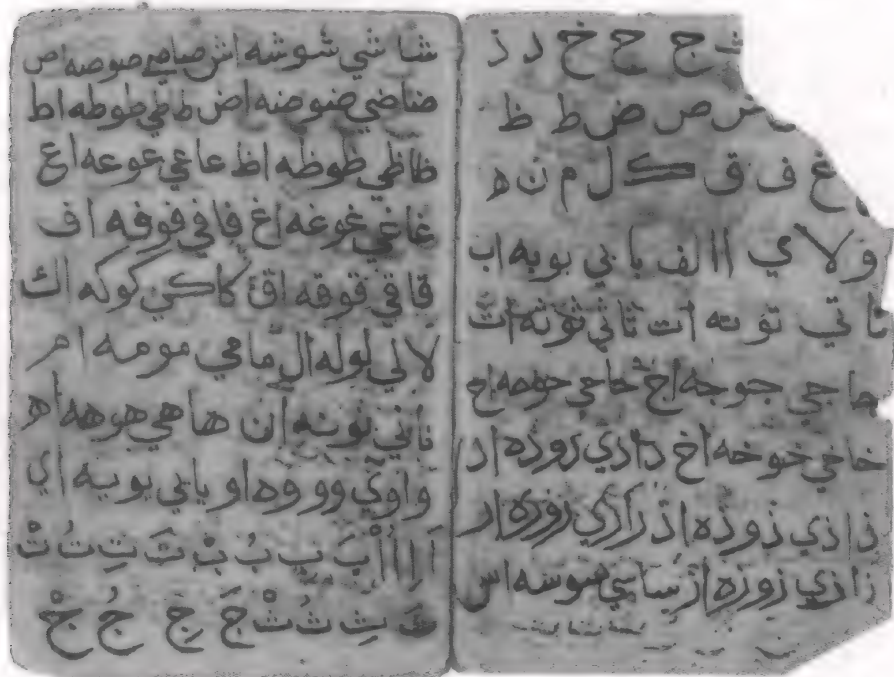 ث ج ح خ د ذ
ش ص ض ط ظ
غ ف ق ك ل م ن ه
و لا ي ا الف با بي بوبه اب
تا تي توته ات ثاثي ثوثه اث
جاجي جوجه اج حاحي حوحه اح
خاخي خوخه اخ دادي دوده اد
ذاذي ذوذه اذ راري روره ار
زازي زوزه از ساسي سوسه اس
شاشي شوشه اش صاصي صوصه اص
ضاضي ضوضه اض طاطي طوطه اط
ظاظي ظوظه اظ عاعي عوعه اع
غاغي غوغه اغ فافي فوفه اف
قاقي قوقه اق كاكي كوكه اك
لالي لوله ال مامي مومه ام
ناني نونه ان هاهي هوهه اه
واوي وووه او يايي يويه اي
اَ اِ اُ اْ بَ بِ بُ بْ تَ تِ تُ تْ
ثَ ثِ ثُ ثْ جَ جِ جُ جْ